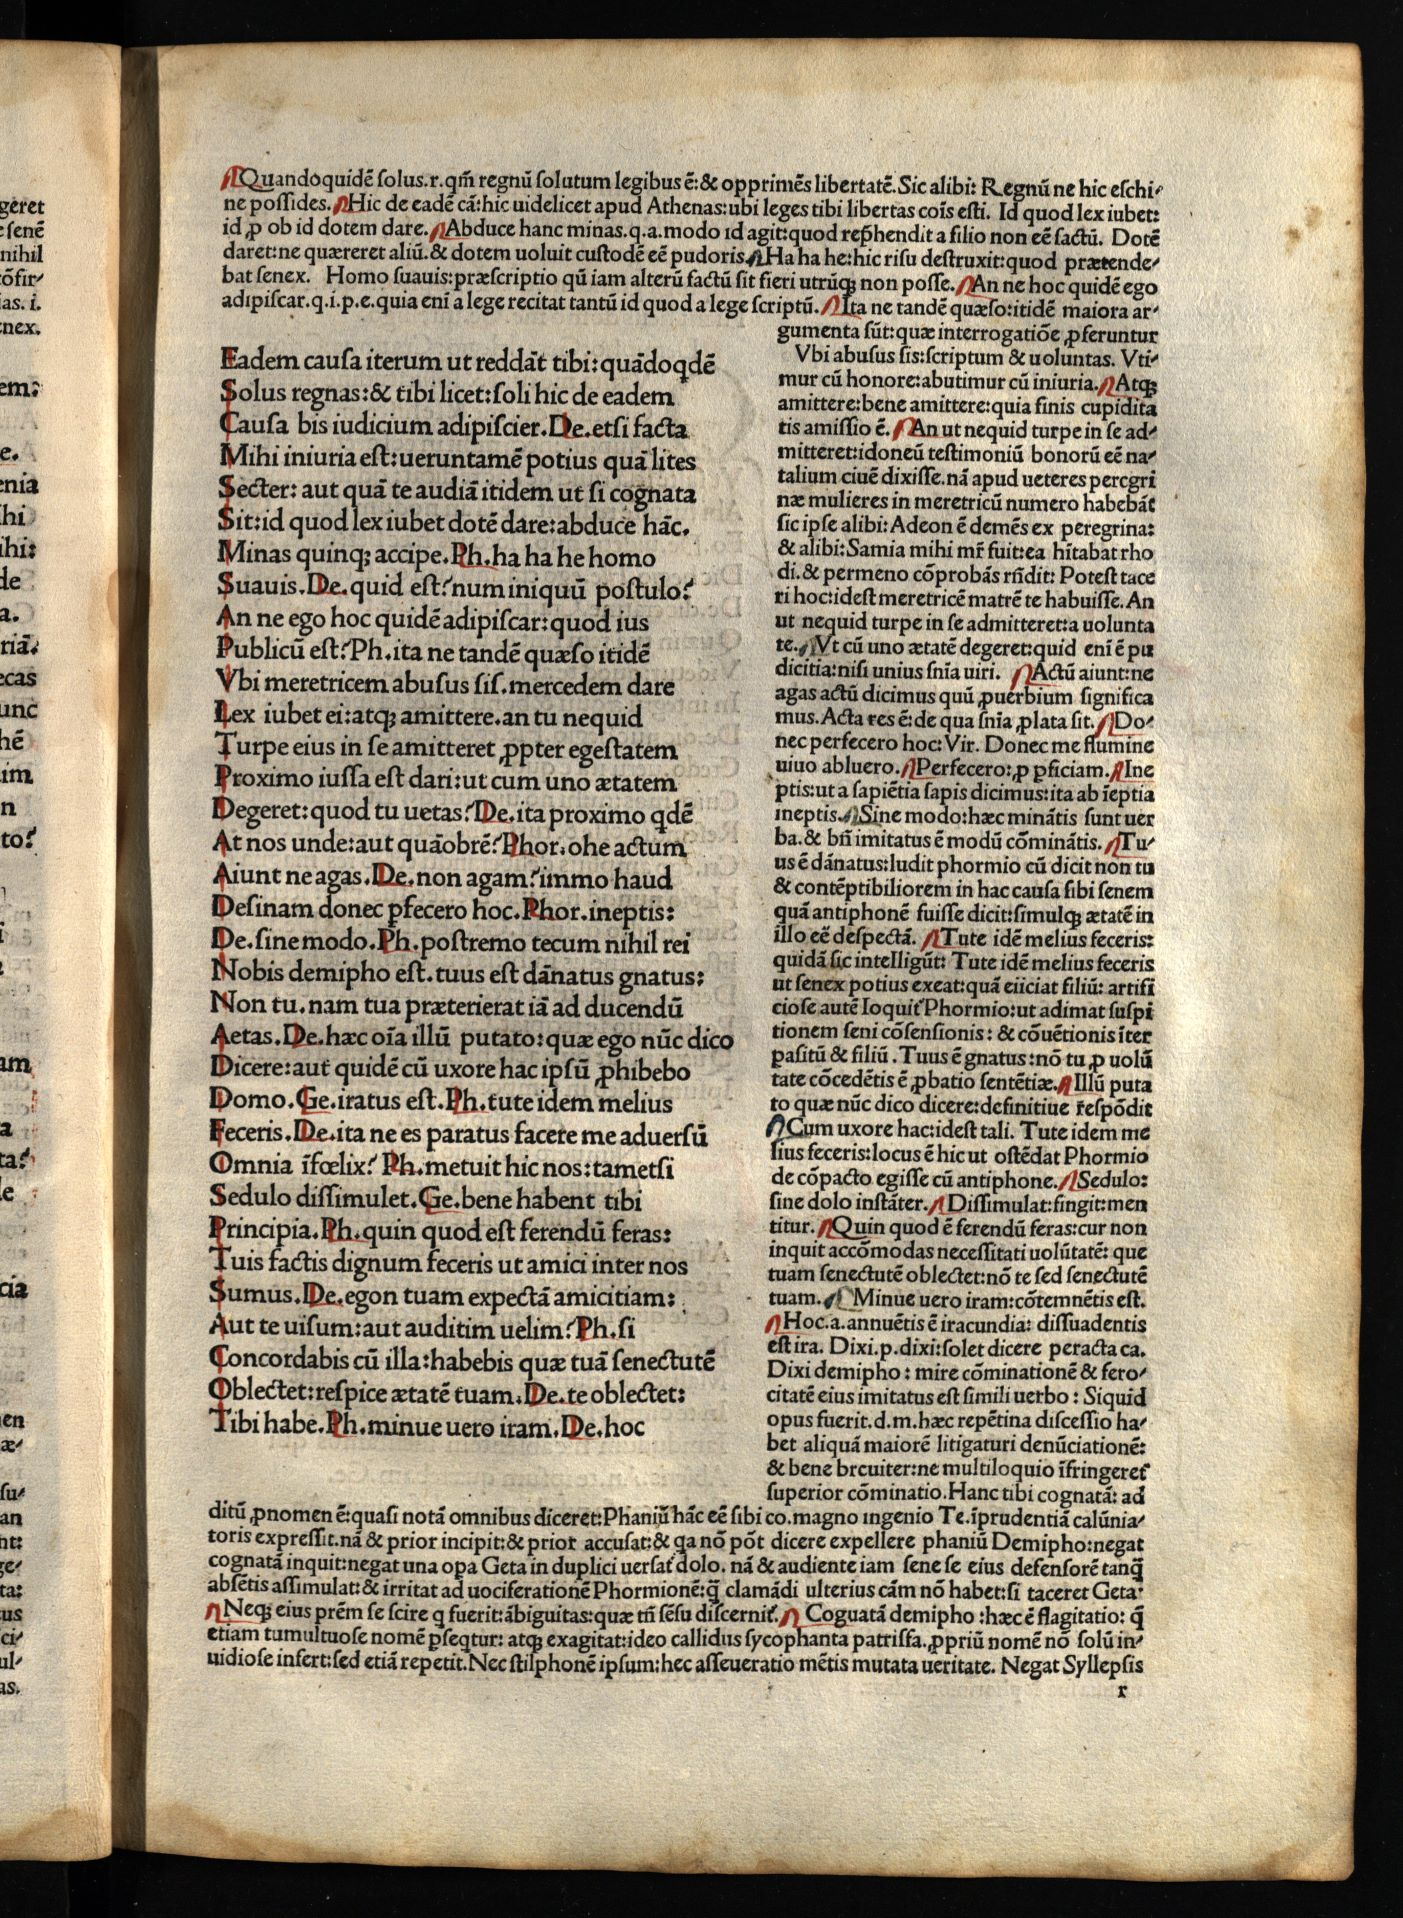 Quandoquidē ſolus.r.qm̄ regnū ſolutum legibus ē:& opprimēs libertatē.Sic alibi: Regnū ne hic eſchi-
ne poſſides. Hic de eadē cā:hic uidelicet apud Athenas:ubi leges tibi libertas coīs eſti. Id quod lex iubet:
id ꝓ ob id dotem dare. Abduce hanc minas.q.a.modo id agit:quod rep̄hendit a filio non eē factū. Dotē
daret:ne quæreret aliū.& dotem uoluit cuſtodē eē pudoris. Ha ha he:hic riſu deſtruxit:quod prætende-
bat ſenex. Homo ſuauis:præſcriptio qū iam alterū factū ſit fieri utrūqꝫ non poſſe. An ne hoc quidē ego
adipiſcar.q.i.p.e.quia enī a lege recitat tantū id quod a lege ſcriptū. Ita ne tandē quæſo:itidē maiora ar-
gumenta ſūt:quæ interrogatiōe ꝓferuntur
Eadem cauſa iterum ut reddāt tibi:quādoqdē
Solus regnas:& tibi licet:ſoli hic de eadem
Cauſa bis iudicium adipiſcier.De.etſi facta
Mihi iniuria eſt:ueruntamē potius quā lites
Secter: aut quā te audiā itidem ut ſi cognata
Sit:id quod lex iubet dotē dare:abduce hāc.
Minas quinqꝫ accipe.Ph.ha ha he homo
Suauis.De.quid eſt?num iniquū poſtulo?
An ne ego hoc quidē adipiſcar:quod ius
Publicū eſt?Ph.ita ne tandē quæſo itidē
Vbi meretricem abuſus ſis.mercedem dare
Lex iubet ei:atqꝫ amittere.an tu nequid
Turpe eius in ſe amitteret ꝓpter egeſtatem
Proximo iuſſa eſt dari:ut cum uno ætatem
Degeret:quod tu uetas?De.ita proximo qdē
At nos unde:aut quāobrē?Phor.ohe actum
Aiunt ne agas.De.non agam?immo haud
Deſinam donec ꝑfecero hoc.Phor.ineptis:
De.ſine modo.Ph.poſtremo tecum nihil rei
Nobis demipho eſt.tuus eſt dānatus gnatus:
Non tu.nam tua præterierat iā ad ducendū
Aetas.De.hæc oīa illū putato:quæ ego nūc dico
Dicere:aut quidē cū uxore hac ipſū ꝓhibebo
Domo.Ge.iratus eſt.Ph.tute idem melius
Feceris.De.ita ne es paratus facere me aduerſū
Omnia īfœlix? Ph.metuit hic nos:tametſi
Sedulo diſſimulet.Ge.bene habent tibi
Principia.Ph.quin quod eſt ferendū feras:
Tuis factis dignum feceris ut amici inter nos
Sumus.De.egon tuam expectā amicitiam:
Aut te uiſum:aut auditim uelim?Ph.ſi
Concordabis cū illa:habebis quæ tuā ſenectutē
Oblectet:reſpice ætatē tuam.De.te oblectet:
Tibi habe.Ph.minue uero iram.De.hoc
Vbi abuſus ſis:ſcriptum & uoluntas. Vti-
mur cū honore:abutimur cū iniuria. Atqꝫ
amittere:bene amittere:quia finis cupidita
tis amiſſio ē. An ut nequid turpe in ſe ad-
mitteret:idoneū teſtimoniū bonorū eē na-
talium ciuē dixiſſe.nā apud ueteres peregri
næ mulieres in meretricū numero habebāt
ſic ipſe alibi:Adeon ē demēs ex peregrina:
& alibi:Samia mihi mr̄ fuit:ea hītabat rho
di.& permeno cōprobās rn̄dit: Poteſt tace
ri hoc:ideſt meretricē matrē te habuiſſe.An
ut nequid turpe in ſe admitteret:a uolunta
te. Vt cū uno ætatē degeret:quid enī ē pu
dicitia:niſi unius ſnīa uiri. Actū aiunt:ne
agas actū dicimus quū ꝓuerbium ſignifica
mus.Acta res ē:de qua ſnīa ꝓlata ſit. Do-
nec perfecero hoc: Vir. Donec me flumine
uiuo abluero. Perfecero:ꝓ ꝑficiam. Ine
ptis:ut a ſapiētia ſapis dicimus:ita ab īeptia
ineptis. Sine modo:hæc minātis ſunt uer
ba.& bn̄ imitatus ē modū cōminātis. Tu-
us ē dānatus:ludit phormio cū dicit non tu
& contēptibiliorem in hac cauſa ſibi ſenem
quā antiphonē fuiſſe dicit:ſimulqꝫ ætatē in
illo eē deſpectā. Tute idē melius feceris:
quidā ſic intelligūt: Tute idē melius feceris
ut ſenex potius exeat:quā eiiciat filiū: artifi
cioſe autē loquit̄ Phormio:ut adimat ſuſpi
tionem ſeni cōſenſionis: & cōuētionis īter
paſitū & filiū. Tuus ē gnatus:nō tu ꝓ uolū
tate cōcedētis ē ꝓbatio ſentētiæ. Illū puta
to quæ nūc dico dicere:definitiue reſpōdit
Cum uxore hac:ideſt tali. Tute idem me
lius feceris:locus ē hic ut oſtēdat Phormio
de cōpacto egiſſe cū antiphone. Sedulo:
ſine dolo inſtāter. Diſſimulat:fingit:men
titur. Quin quod ē ferendū feras:cur non
inquit accōmodas neceſſitati uolūtatē: que
tuam ſenectutē oblectet:nō te ſed ſenectutē
tuam. Minue uero iram:cōtemnētis eſt.
Hoc.a.annuētis ē iracundia: diſſuadentis
eſt ira. Dixi.p.dixi:ſolet dicere peracta ca.
Dixi demipho: mire cōminationē & fero-
citatē eius imitatus eſt ſimili uerbo: Siquid
opus fuerit.d.m.hæc repētina diſceſſio ha-
bet aliquā maiorē litigaturi denūciationē:
& bene breuiter:ne multiloquio īfringeret̄
ſuperior cōminatio.Hanc tibi cognatā: ad
ditū ꝓnomen ē:quaſi notā omnibus diceret:Phaniū hāc eē ſibi co.magno ingenio Te.īprudentiā calūnia-
toris expreſſit.nā & prior incipit:& prior accuſat:& qa nō pōt dicere expellere phaniū Demipho:negat
cognatā inquit:negat una opa Geta in duplici uerſat̄ dolo. nā & audiente iam ſene ſe eius defenſorē tanq̄
abſētis aſſimulat:& irritat ad uociferationē Phormionē:q̄ clamādi ulterius cām nō habet:ſi taceret Geta.
Neqꝫ eius prēm ſe ſcire q fuerit:ābiguitas:quæ tn̄ ſēſu diſcernit̄. Coguatā demipho:hæc ē flagitatio: q̄
etiam tumultuoſe nomē ꝑſeqtur: atqꝫ exagitat:ideo callidus ſycophanta patriſſa.ꝓpriū nomē nō ſolū in-
uidioſe inſert:ſed etiā repetit.Nec ſtilphonē ipſum:hec aſſeueratio mētis mutata ueritate. Negat Syllepſis
r